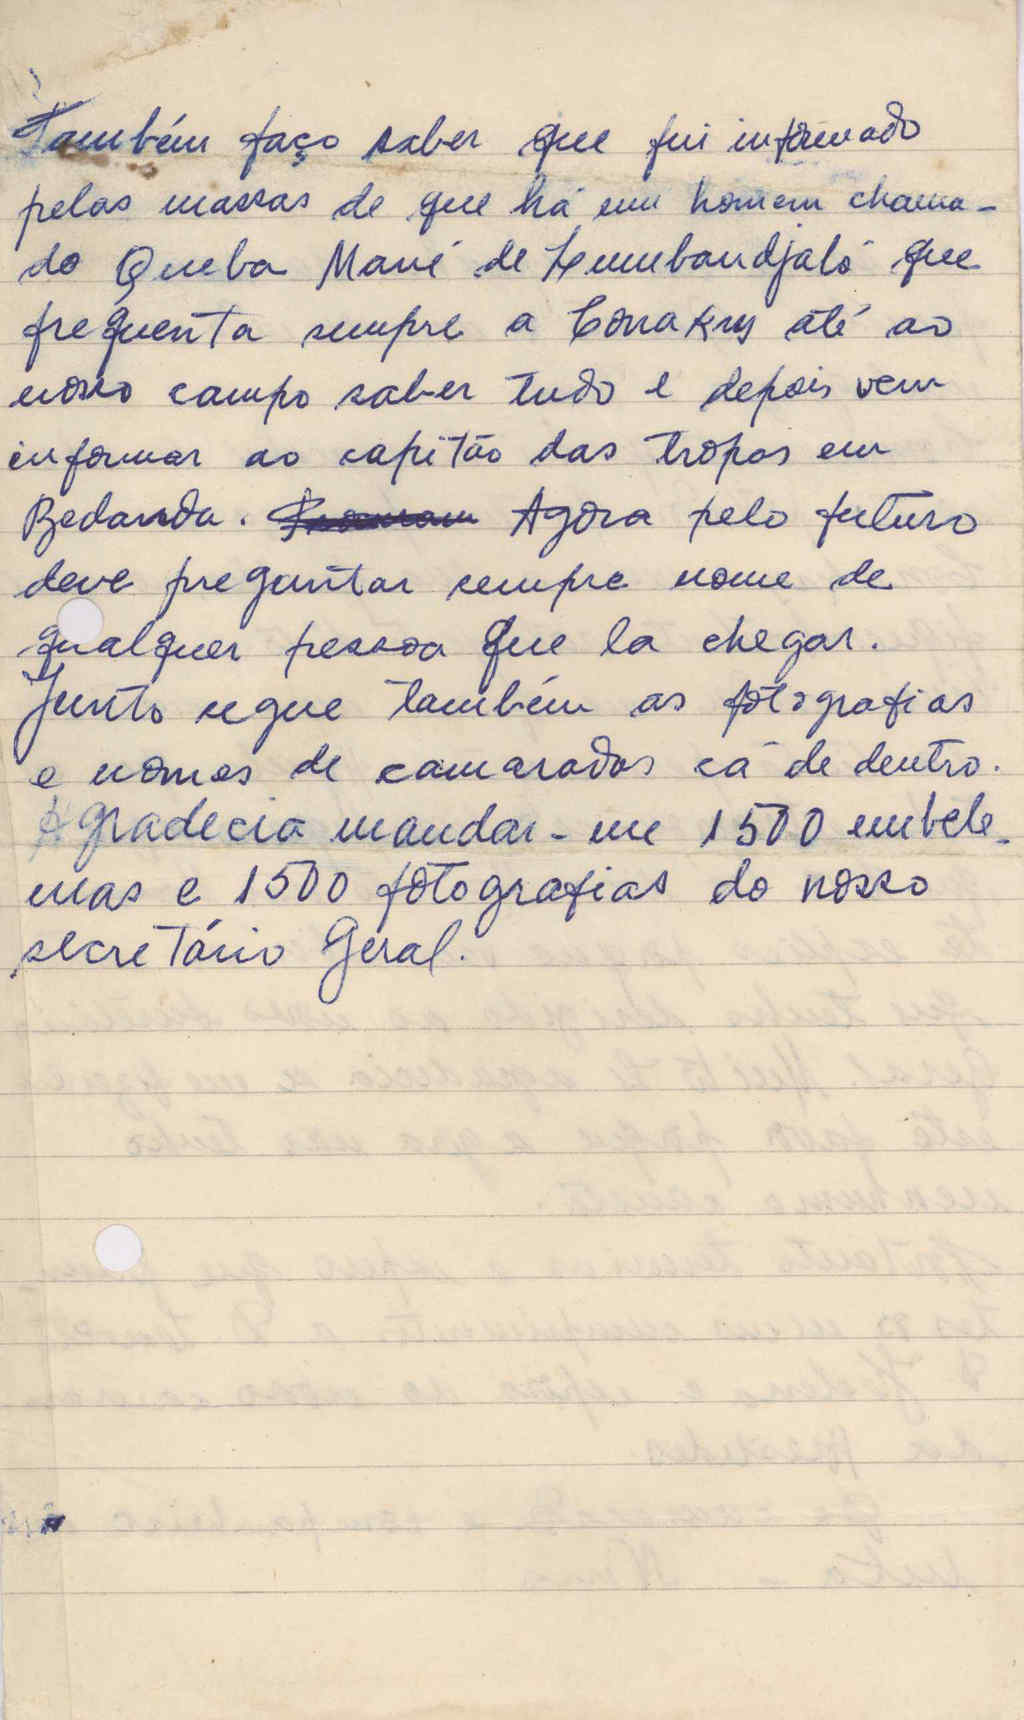 Também faço saber que fui informado
pelas massas de que há um homem chama-
do Queba Mané de Cumbandjaló que
frequenta sempre a Conakry até ao
nosso campo saber tudo e depois vem
informar ao capitão das tropas em
Bedanda. Agora pelo futuro
deve preguntar sempre nome de
qualquer pessoa que la chegar.
Junto segue também as fotografias
e nomes de camaradas cá de dentro.
Agradecia mandar-me 1500 embele-
mas e 1500 fotografias do nosso
secretário Geral.